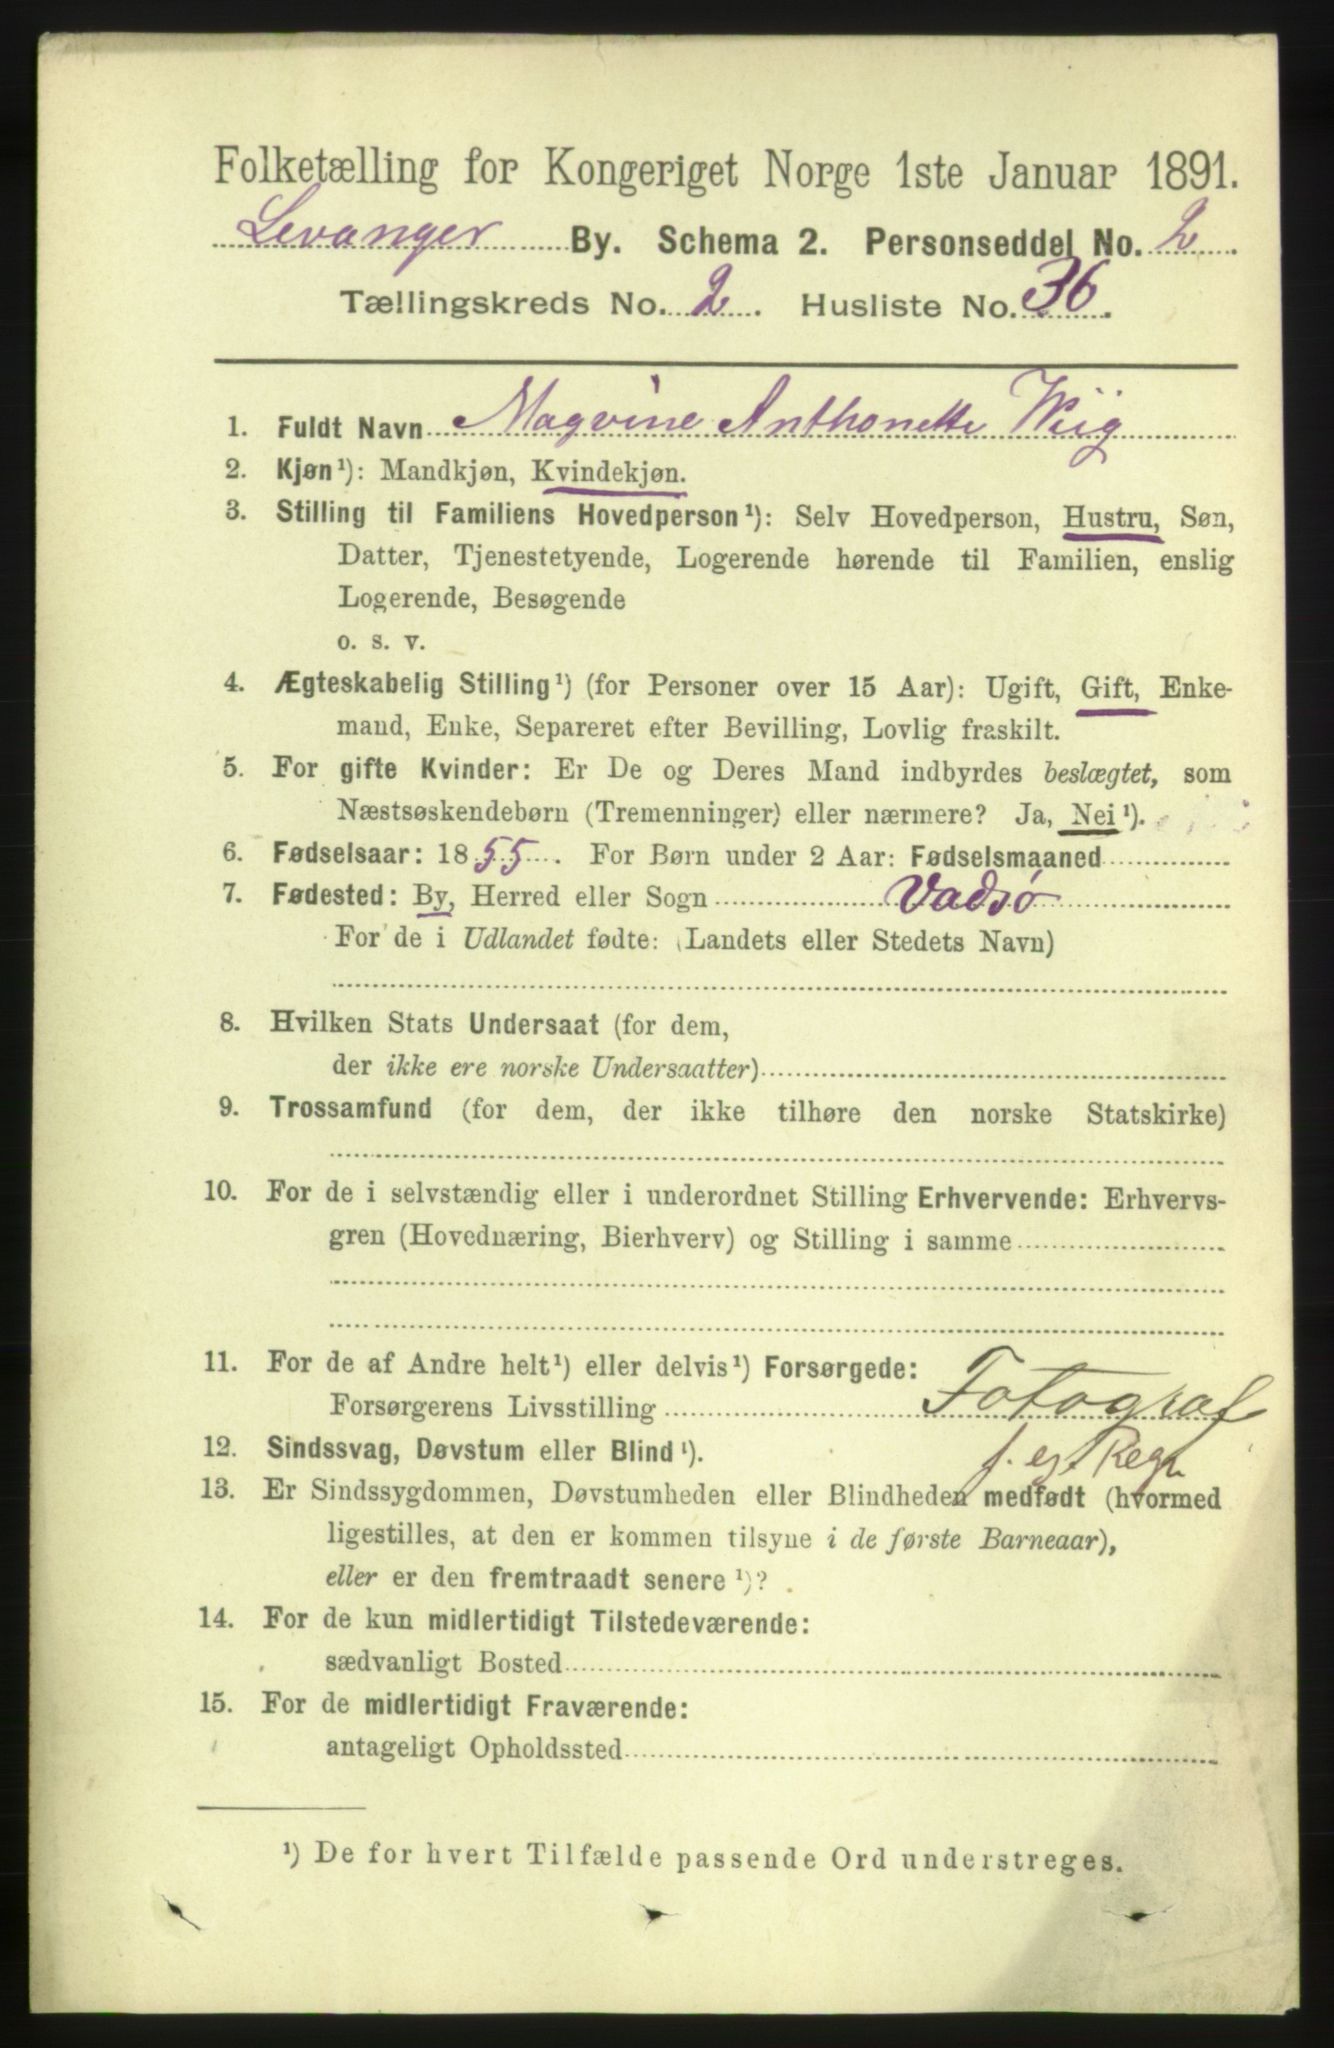 Folketælling for Kongeriget Norge 1ste Januar 1891.
Levanger By. Schema 2. Personseddel No. 2.
Tællingskreds No. 2. Husliste No. 36.
1. Fuldt Navn Magvine Anthonette Wiig
2. Kjøn¹): Mandkjøn, Kvindekjøn.
3. Stilling til Familiens Hovedperson¹): Selv Hovedperson, Hustru, Søn,
Datter, Tjenestetyende, Logerende hørende til Familien, enslig
Logerende, Besøgende
o. s. v.
4. Ægteskabelig Stilling¹) (for Personer over 15 Aar): Ugift, Gift, Enke-
mand, Enke, Separeret efter Bevilling, Lovlig fraskilt.
5. For gifte Kvinder: Er De og Deres Mand indbyrdes beslægtet, som
Næstsøskendebørn (Tremenninger) eller nærmere? Ja, Nei¹).
6. Fødselsaar: 1855. For Børn under 2 Aar: Fødselsmaaned
7. Fødested: By, Herred eller Sogn Vadsø
For de i Udlandet fødte: (Landets eller Stedets Navn)
8. Hvilken Stats Undersaat (for dem,
der ikke ere norske Undersaatter)
9. Trossamfund (for dem, der ikke tilhøre den norske Statskirke)
10. For de i selvstændig eller i underordnet Stilling Erhvervende: Erhvervs-
gren (Hovednæring, Bierhverv) og Stilling i samme
11. For de af Andre helt¹) eller delvis¹) Forsørgede:
Forsørgerens Livsstilling Fotograf
f. eg. Regn
12. Sindssvag, Døvstum eller Blind¹).
13. Er Sindssygdommen, Døvstumheden eller Blindheden medfødt (hvormed
ligestilles, at den er kommen tilsyne i de første Barneaar),
eller er den fremtraadt senere¹)?
14. For de kun midlertidigt Tilstedeværende:
sædvanligt Bosted
15. For de midlertidigt Fraværende:
antageligt Opholdssted
¹) De for hvert Tilfælde passende Ord understreges.